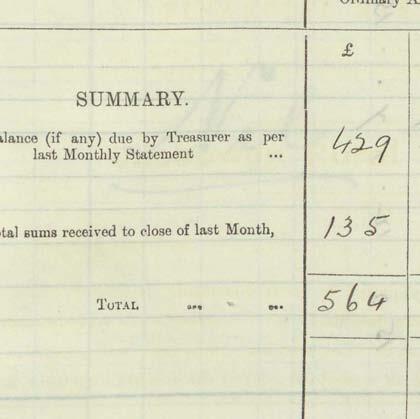 Ordinary A
£
SUMMARY.
alance (if any) due by Treasurer as per
last Monthly Statement ... 429
otal sums received to close of last Month, 135
TOTAL ... ... 564